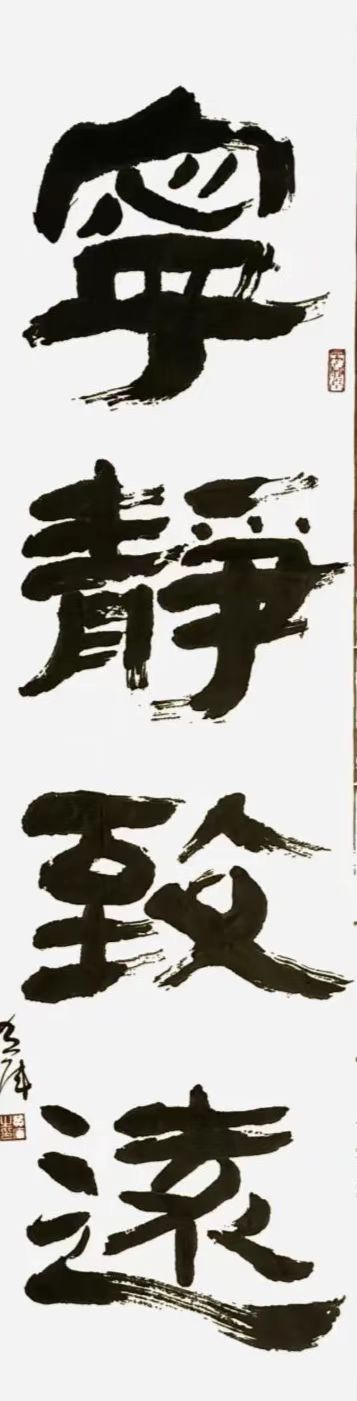 寧靜致遠